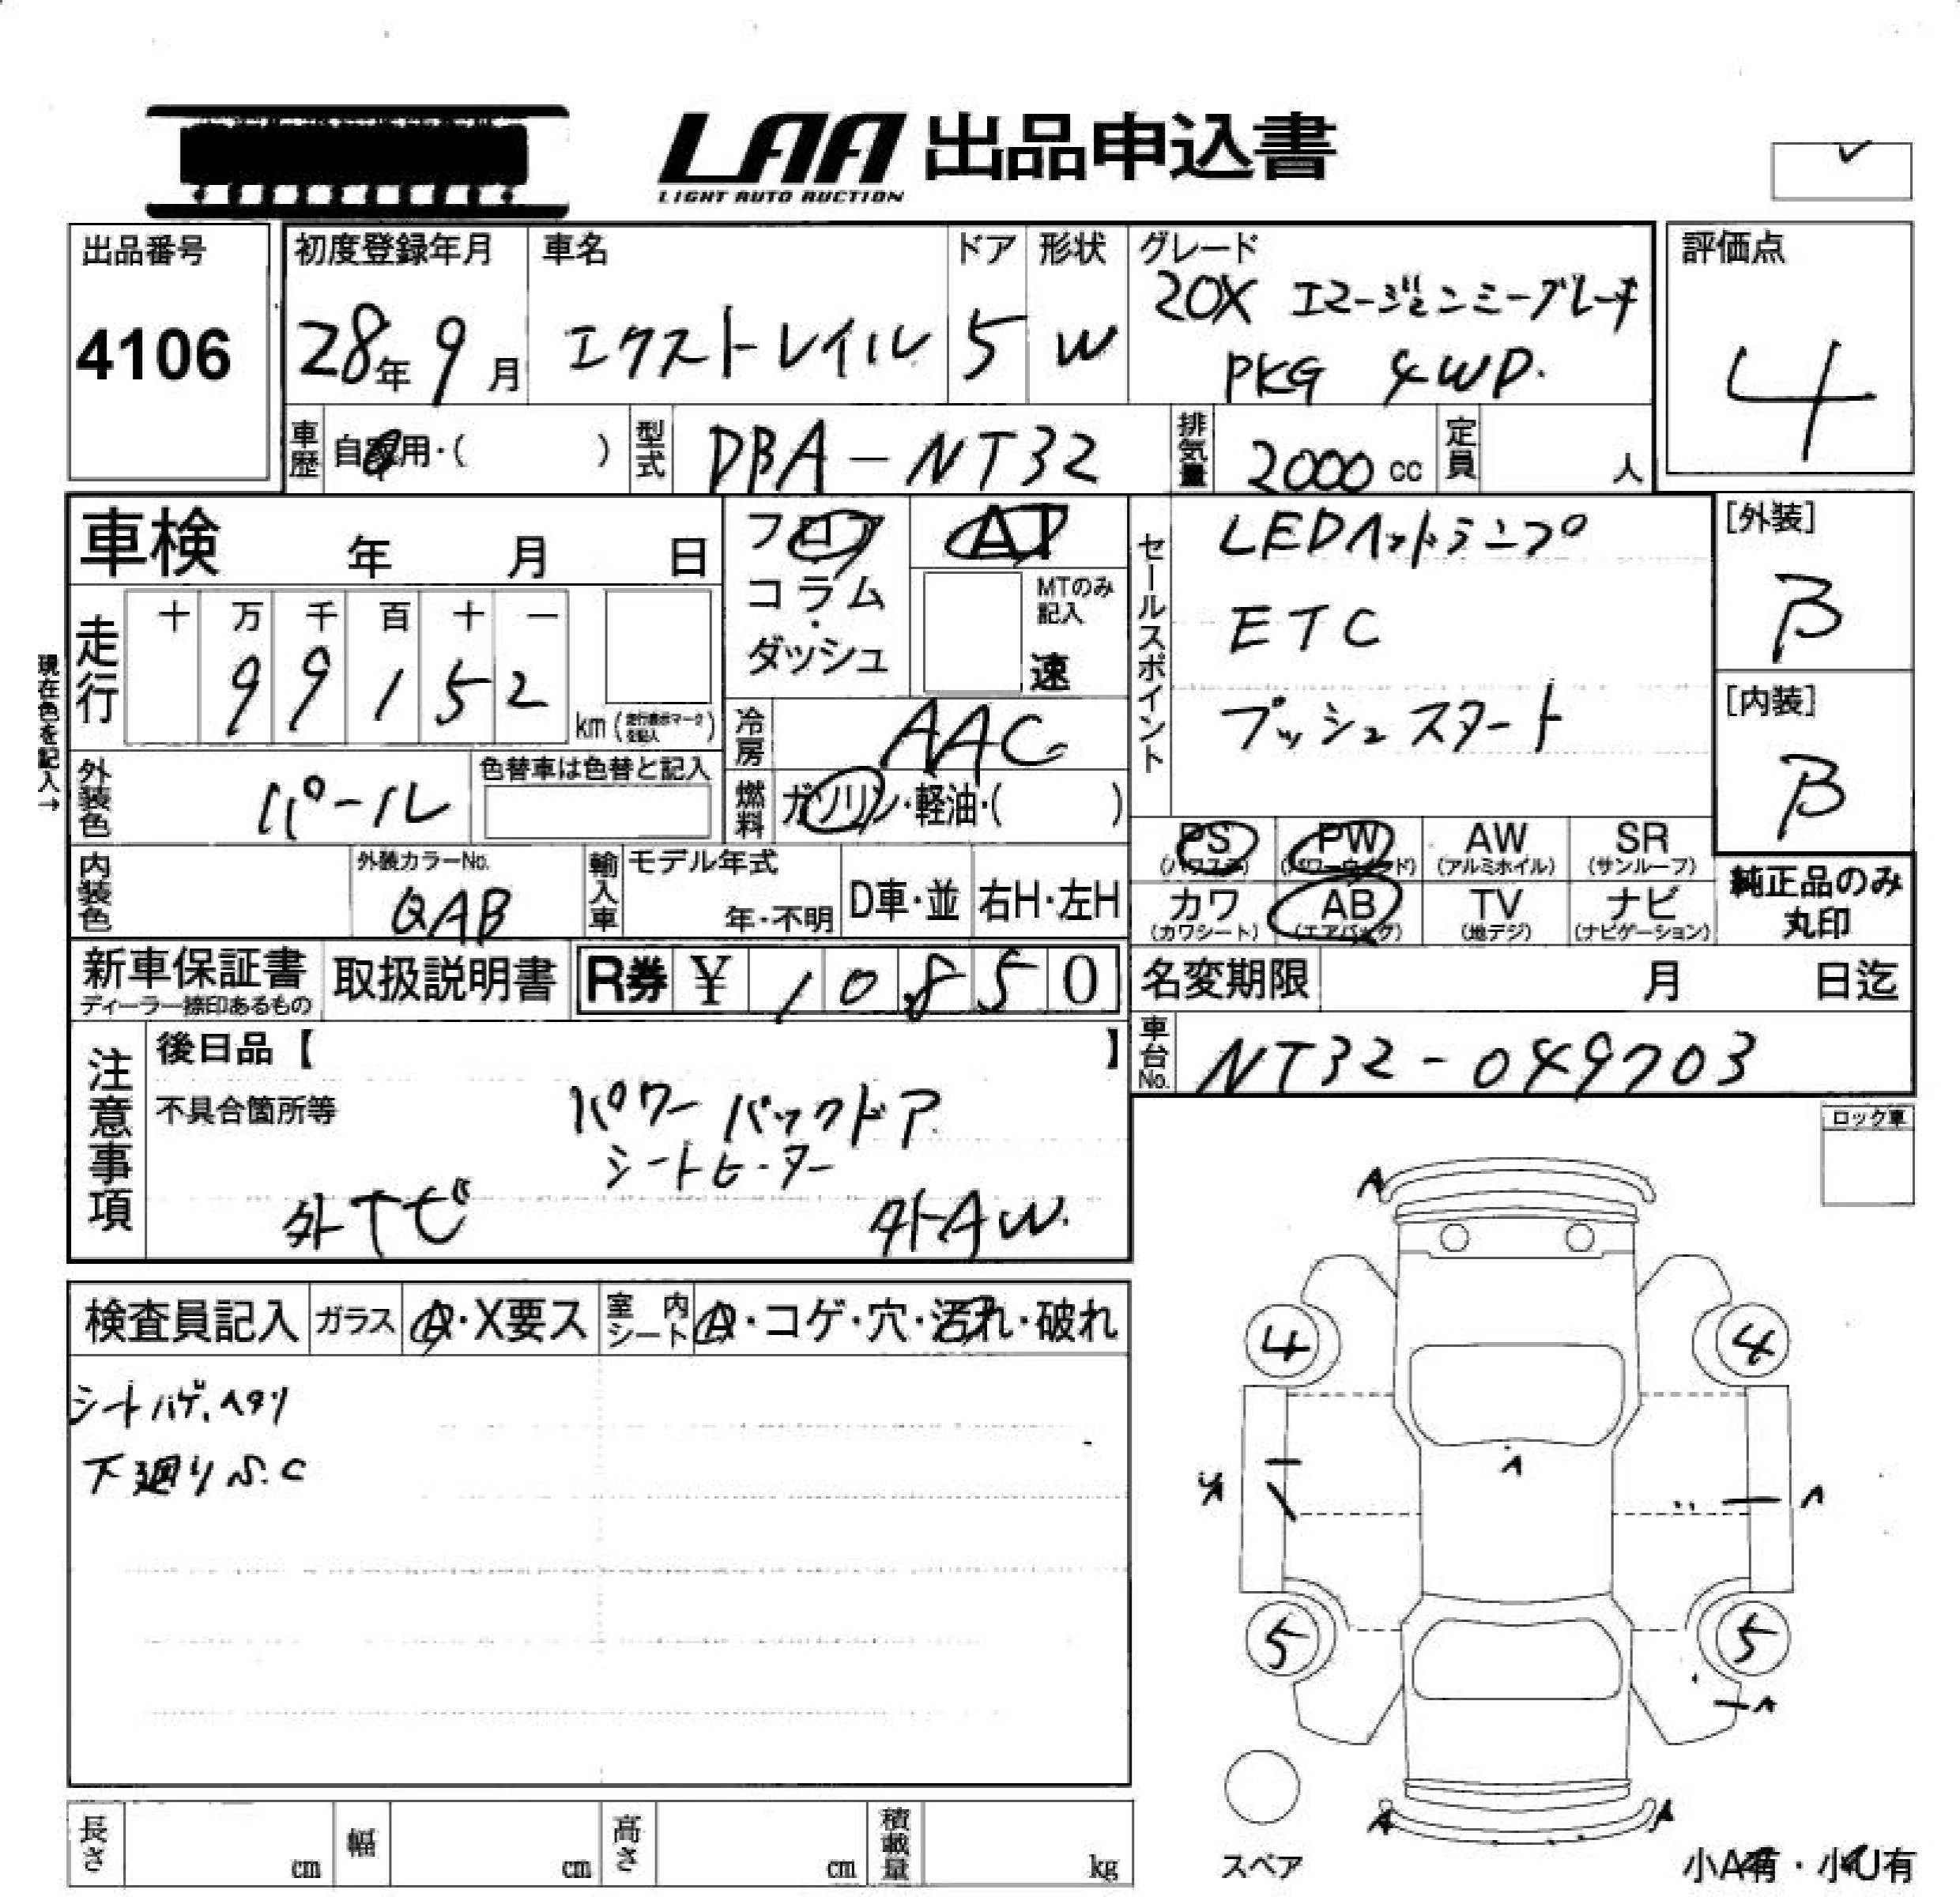 LAA 出品申込書
LIGHT AUTO AUCTION
出品番号
4106
初度登録年月
28年 9月
車名
エクストレイル
ドア
5
形状
W
グレード
20X エマージェンシーブレーキ
PKG 4WD.
評価点
4
車歴
自家用・( )
型式
DBA-NT32
排気量
2000 cc
定員
人
車検 年 月 日
フロア
コラム
・
ダッシュ
AT
MTのみ
記入
速
セールスポイント
LEDヘッドランプ
ETC
プッシュスタート
[外装]
B
[内装]
B
現在色を記入→
走行
十 万 千 百 十 一
9 9 1 5 2
km (走行表示マークを記入)
冷房
AAC
外装色
パール
色替車は色替と記入
燃料
ガソリン・軽油・( )
PS
(パワステ)
PW
(パワーウインド)
AW
(アルミホイル)
SR
(サンルーフ)
カワ
(カワシート)
AB
(エアバッグ)
TV
(地デジ)
ナビ
(ナビゲーション)
純正品のみ
丸印
内装色
外装カラーNo.
QAB
輸入車
モデル年式
年・不明
D車・並
右H・左H
新車保証書
ディーラー捺印あるもの
取扱説明書
R券 ¥ 10850
名変期限 月 日迄
車台No.
NT32-049703
注意事項
後日品【 】
不具合箇所等
パワーバックドア
シートヒーター
外ナビ
外AW.
ロック車
検査員記入
ガラス
A・X要ス
室内シート
A・コゲ・穴・汚れ・破れ
シートハゲ、ヘタリ
下廻りS.C
A
4
4
A
A
5
5
A
A
A
スペア
小A有・小U有
長さ cm
幅 cm
高さ cm
積載量 kg